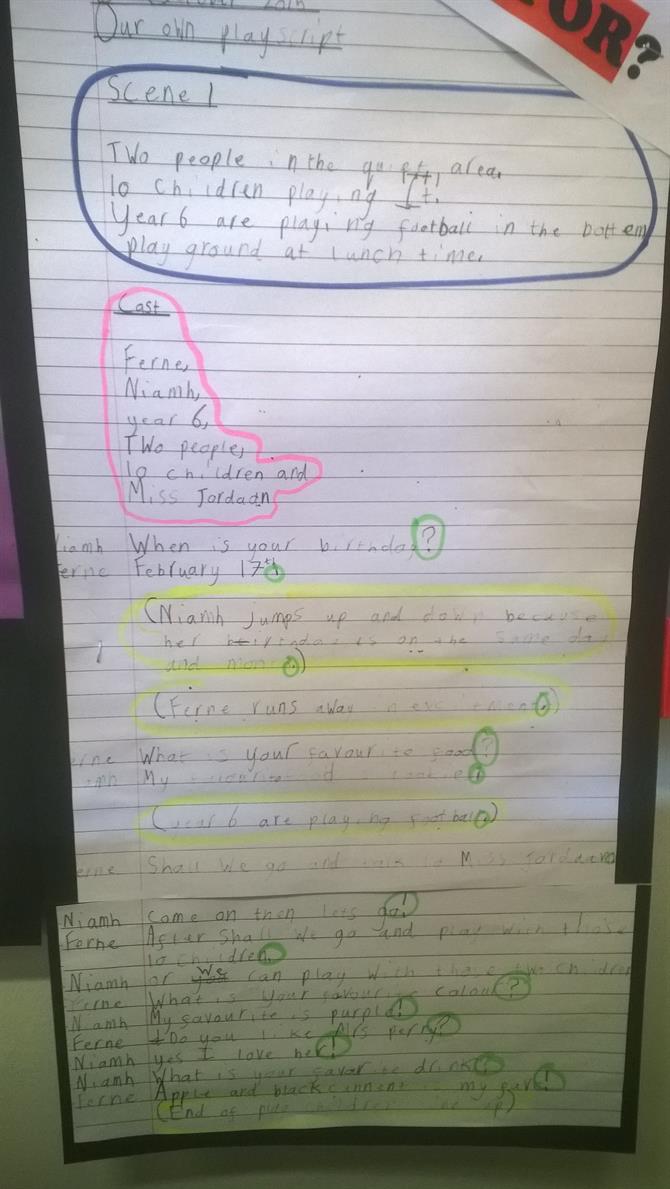 OR?
Our own playscript
Scene 1
Two people in the quiet, area.
10 children playing It.
Year 6 are playing football in the bottem
play ground at lunch time.
Cast
Ferne,
Niamh,
year 6,
Two people,
10 children and
Miss Jordaan
Niamh When is your birthday?
Ferne February 17th.
(Niamh jumps up and down because
her birthday is on the same day
and month.)
(Ferne runs away in excitment.)
Ferne What is your favourite food?
Niamh My favourite food is
(year 6 are playing football.)
Ferne Shall we go and talk to Miss Jordaan
Niamh Come on then lets go!
Ferne After shall we go and play with those
10 children.
Niamh or we can play with those two children
Ferne What is your favourite colour?
Niamh My favourite is purple!
Ferne Do you like Mrs perry?
Niamh yes I love her!
Niamh What is your favarite drink?
Ferne Apple and blackcurrent is my
(End of children line up)